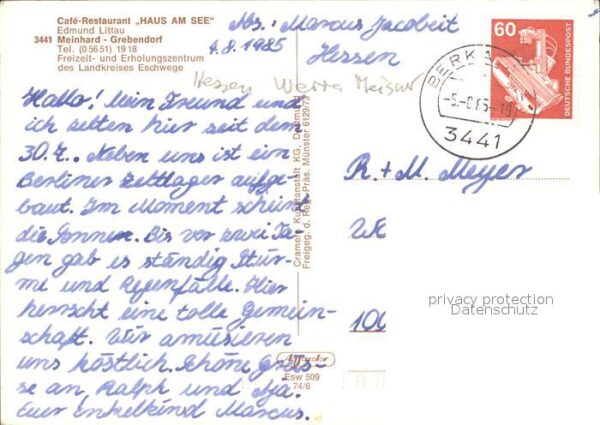 Café-Restaurant „HAUS AM SEE"
Edmund Littau
3441 Meinhard - Grebendorf
Tel. (0 56 51) 19 18
Freizeit- und Erholungszentrum
des Landkreises Eschwege
Abs.: Marcus Jacobeit
4.8.1985
Hessen
Hessen Werra Meisner
60
DEUTSCHE BUNDESPOST
BERKA
-5.-8.85-18
3441
Hallo! Mein Freund und
ich zelten hier seit dem
30.7. Neben uns ist ein
Berliner Zeltlager aufge-
baut. Im Moment scheint
die Sonne. Bis vor zwei Ta-
gen gab es ständig Stür-
me und Regenfälle. Hier
herrscht eine tolle Gemein-
schaft. Wir amüsieren
uns köstlich. Schöne Grüs-
se an Ralph und Aja.
Euer Enkelkind Marcus.
Cramers Kunstanstalt KG, Dortmund
Freigeg. d. Reg.-Präs. Münster 6129/73
R. + M. Meyer
100
privacy protection
Datenschutz
Esw 509
74/6